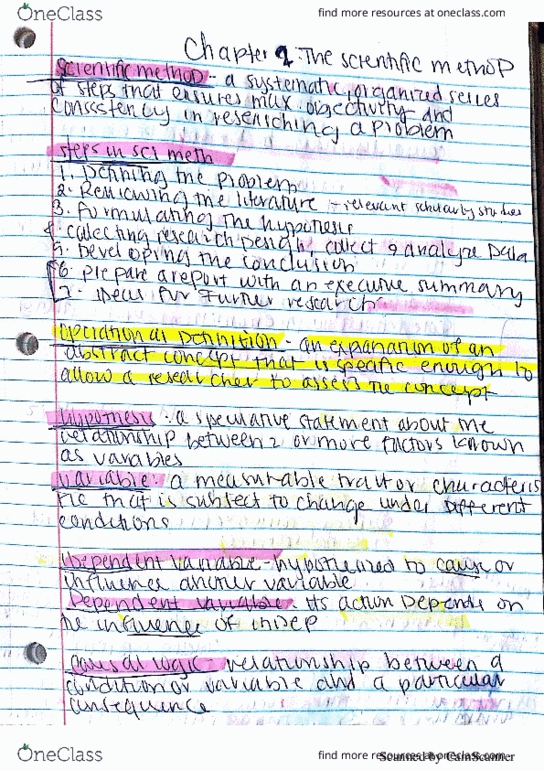 OneClass
find more resources at oneclass.com
Chapter 2: The scientific method
Scientific method - a systematic, organized series
of steps that ensures max objectivity and
consistency in researching a problem
steps in sci meth
1. Defining the problem
2. Reviewing the literature - relevant scholarly studies
3. Formulating the hypothesis
4. collecting research design, collect & analyze Data
5. Developing the conclusion
6. prepare a report with an executive summary
7. ideas for further research
operational Definition - an explanation of an
abstract concept that is specific enough to
allow a researcher to assess the concept
hypothesis - a speculative statement about the
relationship between 2 or more factors known
as variables
variable - a measurable trait or characteris
tic that is subject to change under different
conditions
Idependent variable - hypothesized to cause or
influence another variable
Dependent variable. its action Depends on
the influence of inDep
causal logic - relationship between a
condition or variable and a particular
consequence
OneClass
find more resources at oneclass.com
Scanned by CamScanner